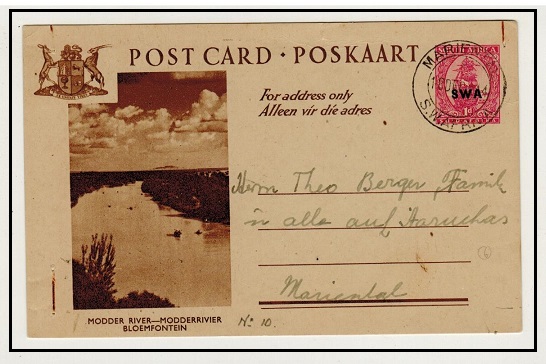 POST CARD · POSKAART
For address only
Alleen vir die adres
SWA
1d
Herrn Theo Berger, Familie
in alle auf Aaruchas
Mariental
MODDER RIVER—MODDERRIVIER
BLOEMFONTEIN
No 10.